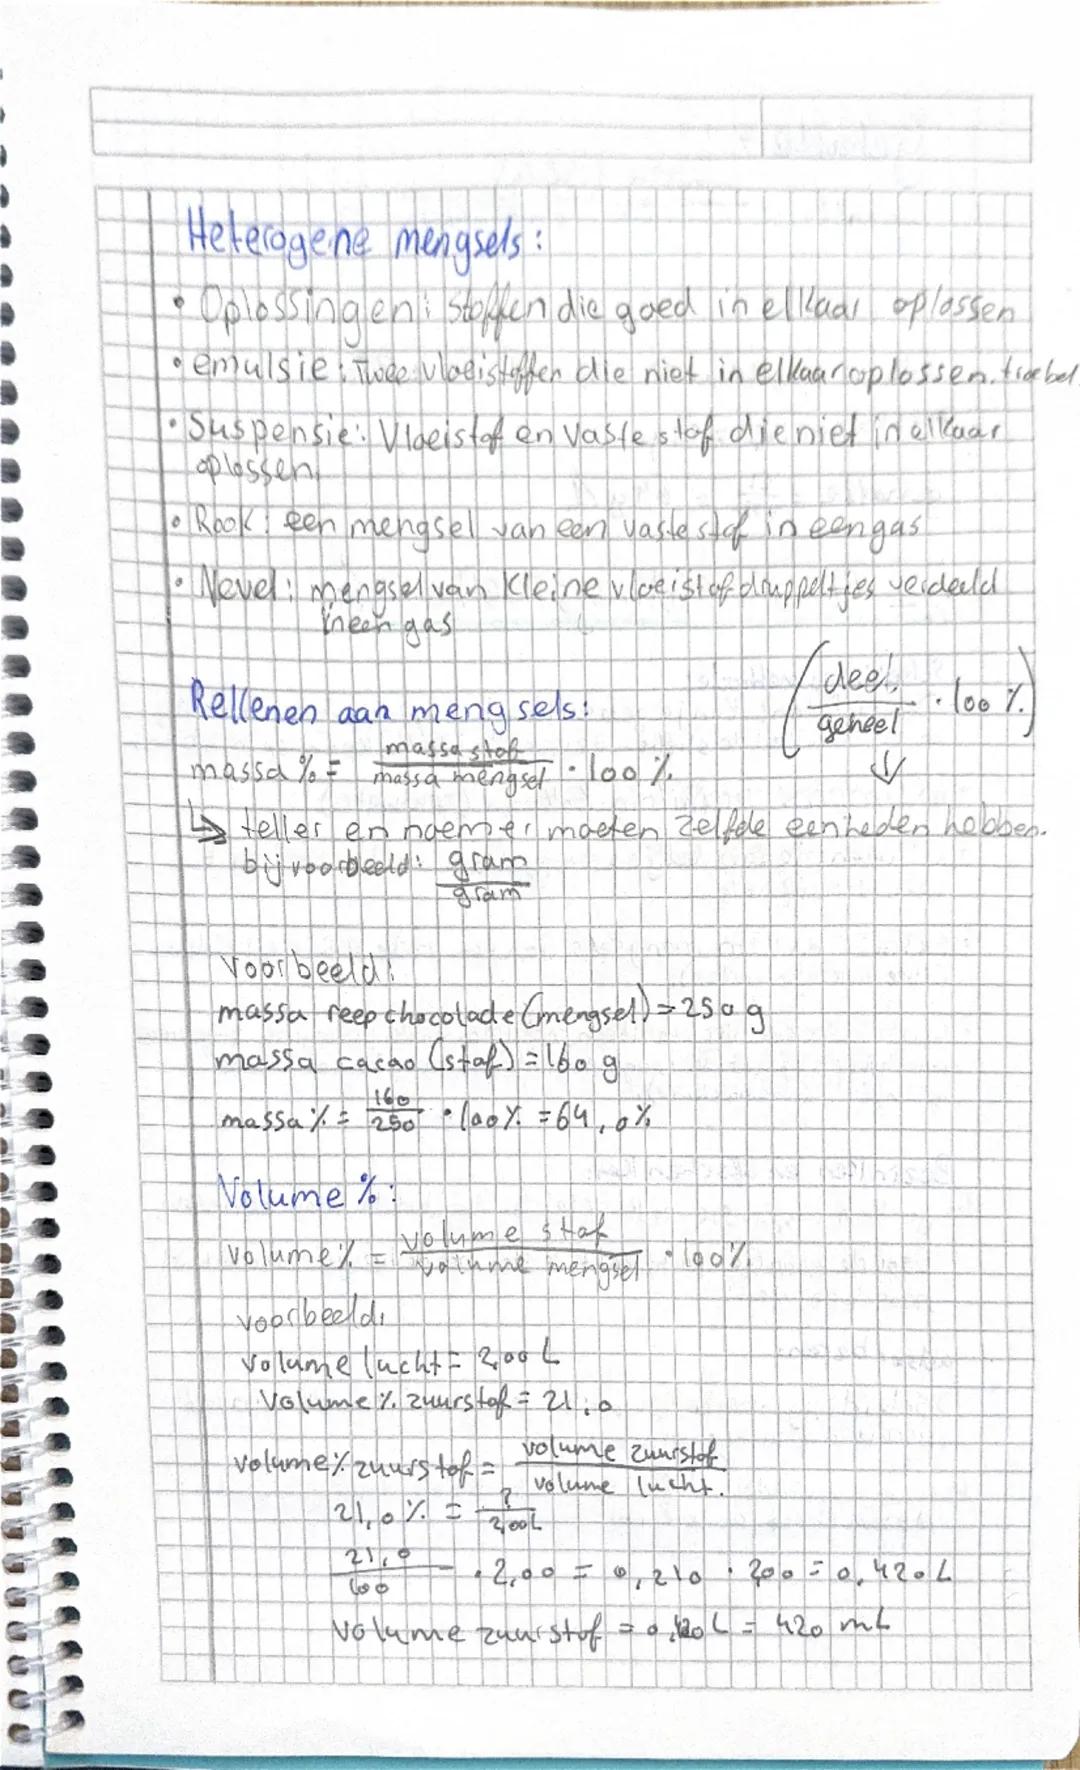 Heterogene mengsels:
• Oplossingen: stoffen die goed in elkaar oplossen
• emulsie: Twee vloeistoffen die niet in elkaar oplossen. troebel.
• Suspensie: Vloeistof en vaste stof die niet in elkaar
oplossen.
• Rook: een mengsel van een vaste stof in een gas
• Nevel: mengsel van kleine vloeistofdruppeltjes verdeeld
in een gas
(deel / geheel · 100 %)
Rekenen aan mengsels:
massa % = massa stof / massa mengsel · 100 %
↳ teller en noemer moeten zelfde eenheden hebben.
bijvoorbeeld: gram / gram
voorbeeld:
massa reep chocolade (mengsel) = 250 g
massa cacao (stof) = 160 g
massa % = 160 / 250 · 100 % = 64,0 %
Volume %:
volume % = volume stof / volume mengsel · 100 %
voorbeeld:
volume lucht = 2,00 L
Volume % zuurstof = 21,0
volume % zuurstof = volume zuurstof / volume lucht.
21,0 % = ? / 2,00 L
21,0 / 100 · 2,00 = 0,210 · 200 = 0,420 L
Volume zuurstof = 0,420 L = 420 mL